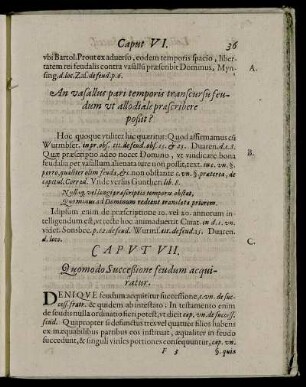 Caput VI. 36
vbi Bartol. Prout ex adverso, eodem temporis spacio, liber-
tatem rei feudalis contra vasallũ præscribit Dominus, Myn-
sing. d. loc. Zas. de feud. p. 8. A.
An vasallus pari temporis transcursu feu-
dum vt allodiale præscribere
possit?
Hoc quoque vtiliter hic quæritur: Quod affirmamus cũ
Wurmbser. B.
Quia præscriptio adeo nocet Domino, vt vindicare bona
feudalia per vasallum alienata iure non possit,
porro, qualiter olim feudo, & c. non obstante c. vn. §. præterea, de
capitul. Corrad. Vide versus Gunther. lib. 8.
Nullaq; vel longa præscriptio temporis obstat,
Quominus ad Dominum redeant translata priorem.
Id ipsum enim de præscriptione 10. vel 20. annorum in-
telligendum est,
videt. Sonsbec. Duaren.
d. loco. C.
CAPVT VII.
Quomodo Successione feudum acqui-
ratur.
DENIQVE feudum acquiritur successione,
& quidem ab intestato: In testamento enim
de feudis nulla ordinatio fieri potest, vt dicit
feud. Quapropter si defunctus tres vel quatuor filios habens
ex inæqualibus partibus eos instituat, æqualiter in feudo
succedunt, & singuli viriles portiones consequuntur, cap. vn.
F 3 §. quin